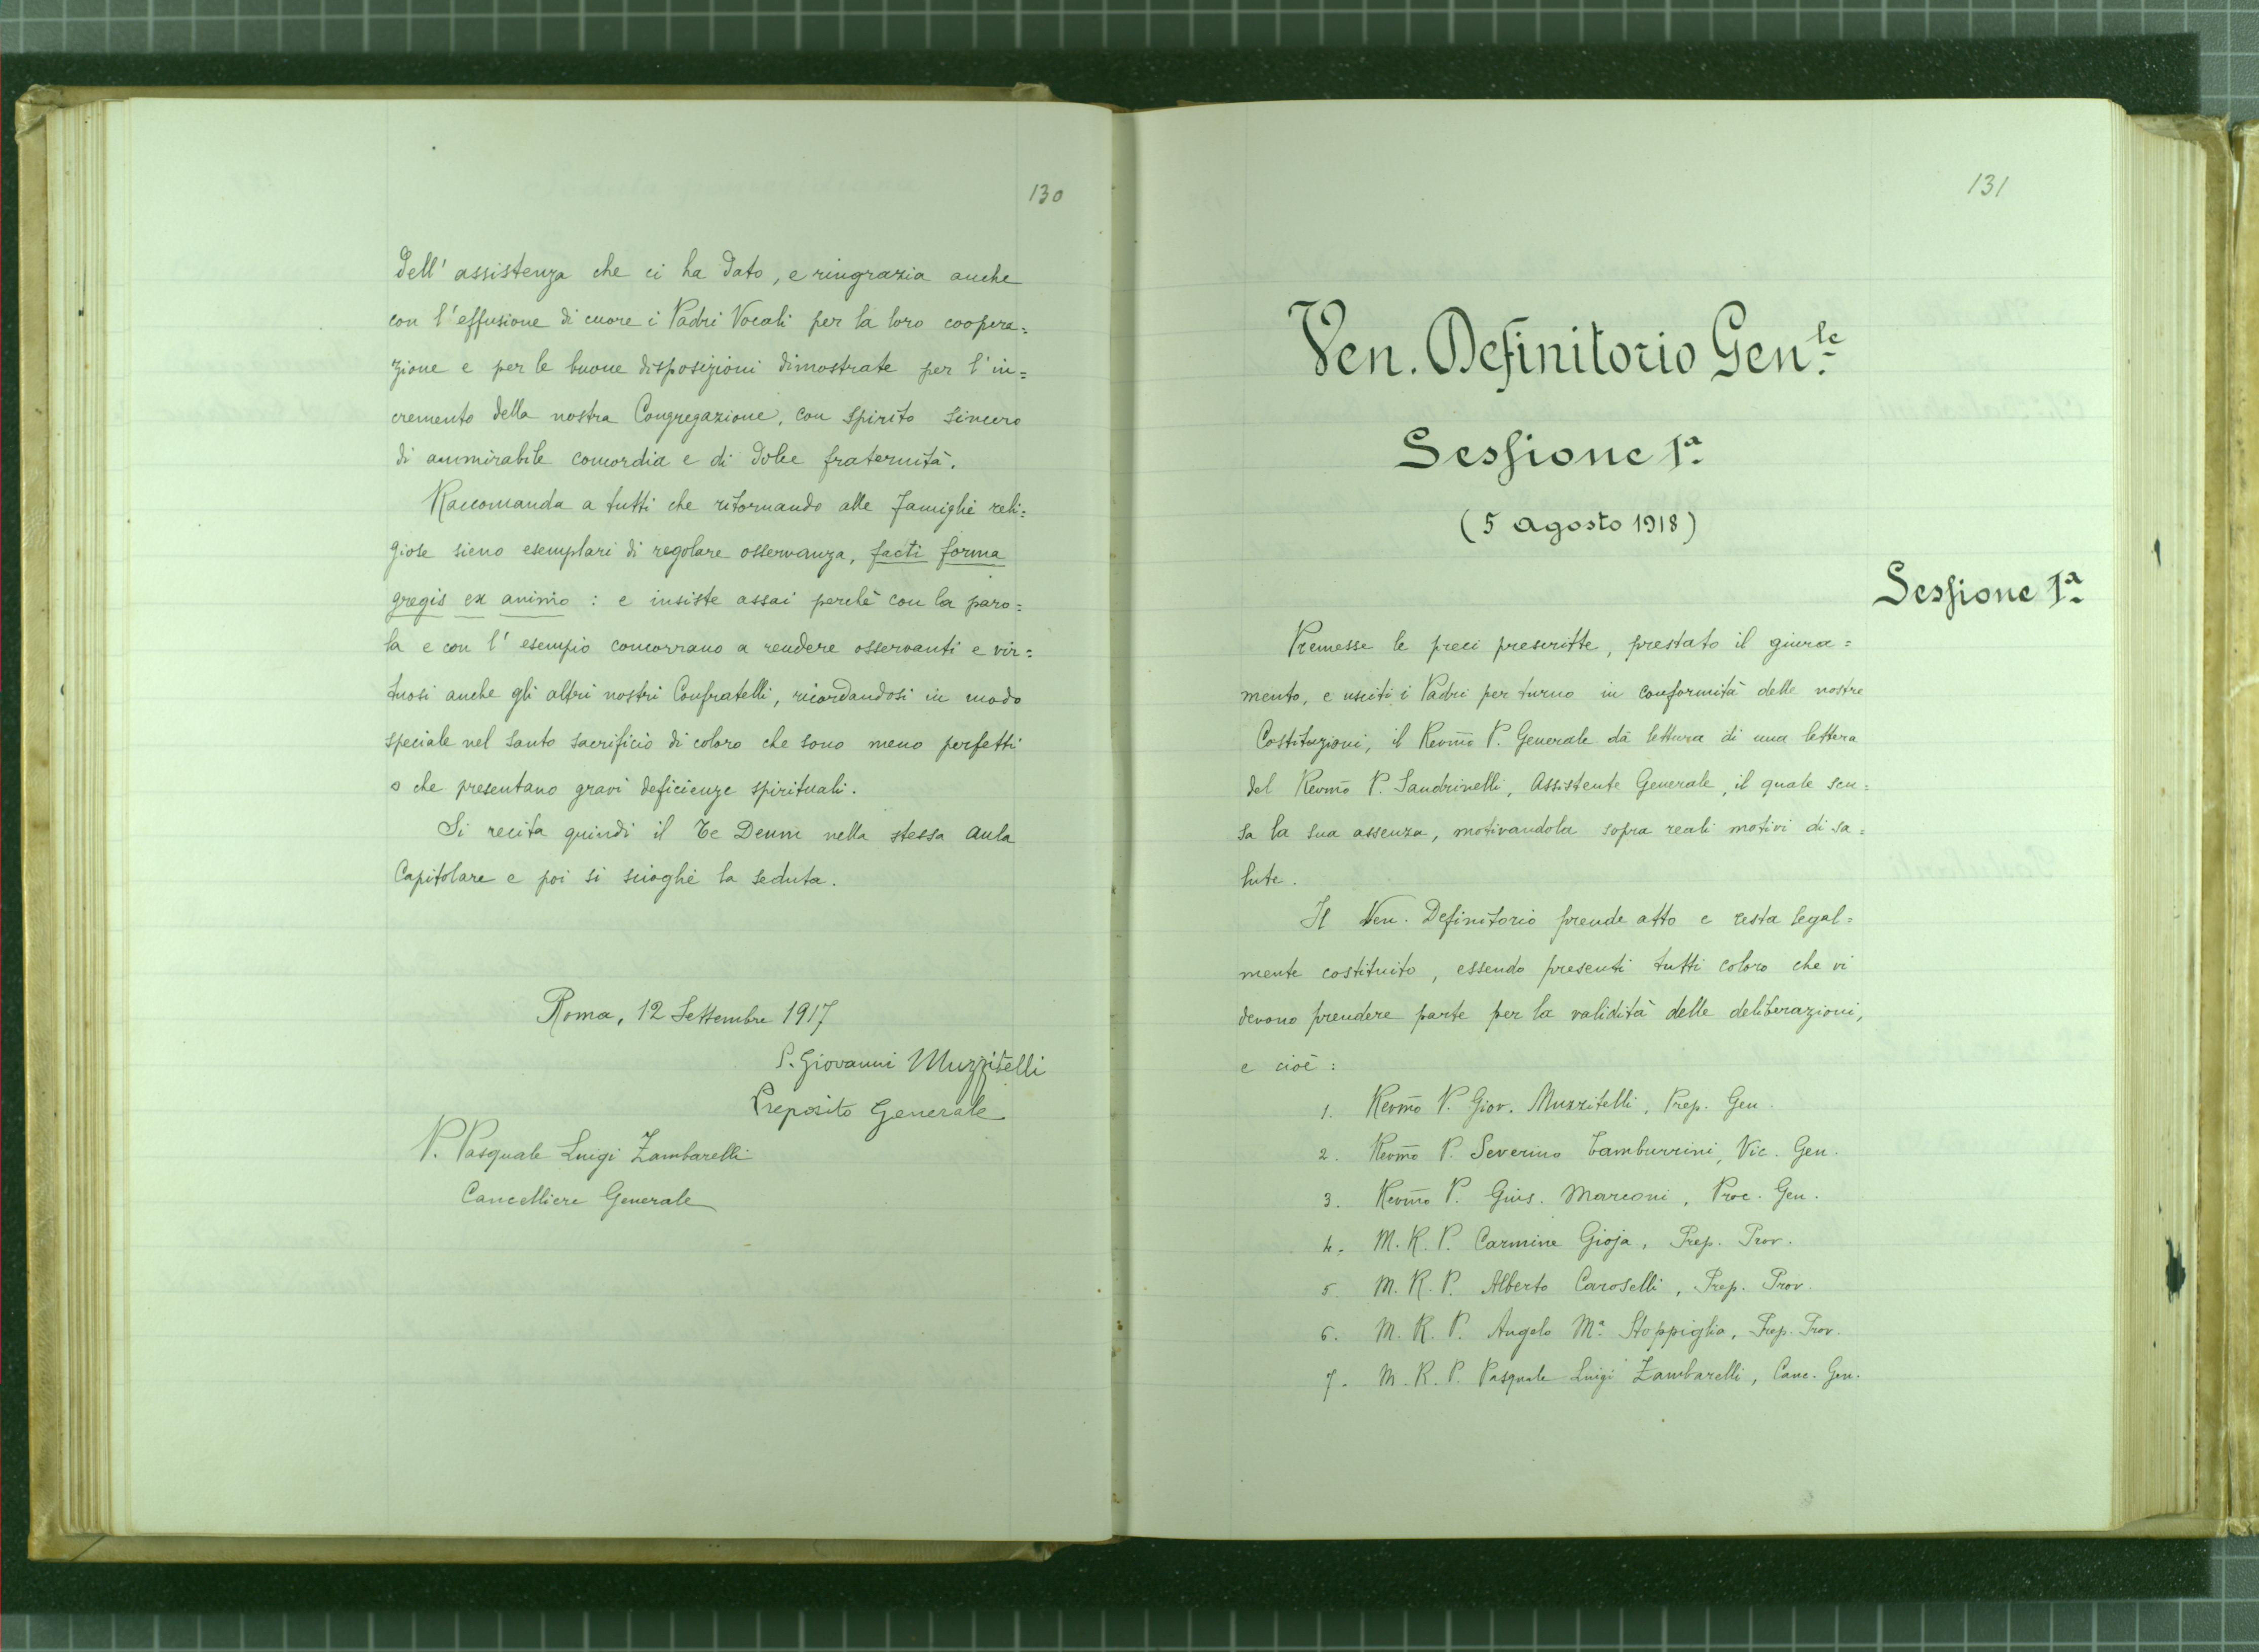 130
dell' assistenza che ci ha dato, e ringrazia anche
con l'effusione di cuore i Padri Vocali per la loro coopera=
zione e per le buone disposizioni dimostrate per l'in=
cremento della nostra Congregazione, con spirito sincero
di ammirabile concordia e di dolce fraternità.
Raccomanda a tutti che ritornando alle famiglie reli=
giose sieno esemplari di regolare osservanza, facti forma
gregis ex animo : e insiste assai perchè con la paro=
la e con l' esempio concorrano a rendere osservanti e vir=
tuosi anche gli altri nostri Confratelli, ricordandosi in modo
speciale nel santo sacrificio di coloro che sono meno perfetti
o che presentano gravi deficienze spirituali.
Si recita quindi il Te Deum nella stessa aula
Capitolare e poi si scioglie la seduta.
Roma, 12 Settembre 1917
P. Giovanni Muzzitelli
Preposito Generale
P. Pasquale Luigi Zambarelli
Cancelliere Generale
131
Ven. Definitorio Gen.le
Sessione 1ª
(5 Agosto 1918)
Sessione 1ª
Premesse le preci prescritte, prestato il giura=
mento, e usciti i Padri per turno in conformità delle nostre
Costituzioni, il Revm̄o P. Generale dà lettura di una lettera
del Revm̄o P. Sandrinelli, Assistente Generale, il quale scu=
sa la sua assenza, motivandola sopra reali motivi di sa=
lute.
Il Ven. Definitorio prende atto e resta legal=
mente costituito, essendo presenti tutti coloro che vi
devono prendere parte per la validità delle deliberazioni,
e cioè :
1. Revm̄o P. Giov. Muzzitelli, Prep. Gen.
2. Revm̄o P. Severino Tamburrini, Vic. Gen.
3. Revm̄o P. Gius. Marconi, Proc. Gen.
4. M. R. P. Carmine Gioja, Prep. Prov.
5. M. R. P. Alberto Caroselli, Prep. Prov.
6. M. R. P. Angelo Mª Stoppiglia, Prep. Prov.
7. M. R. P. Pasquale Luigi Zambarelli, Canc. Gen.